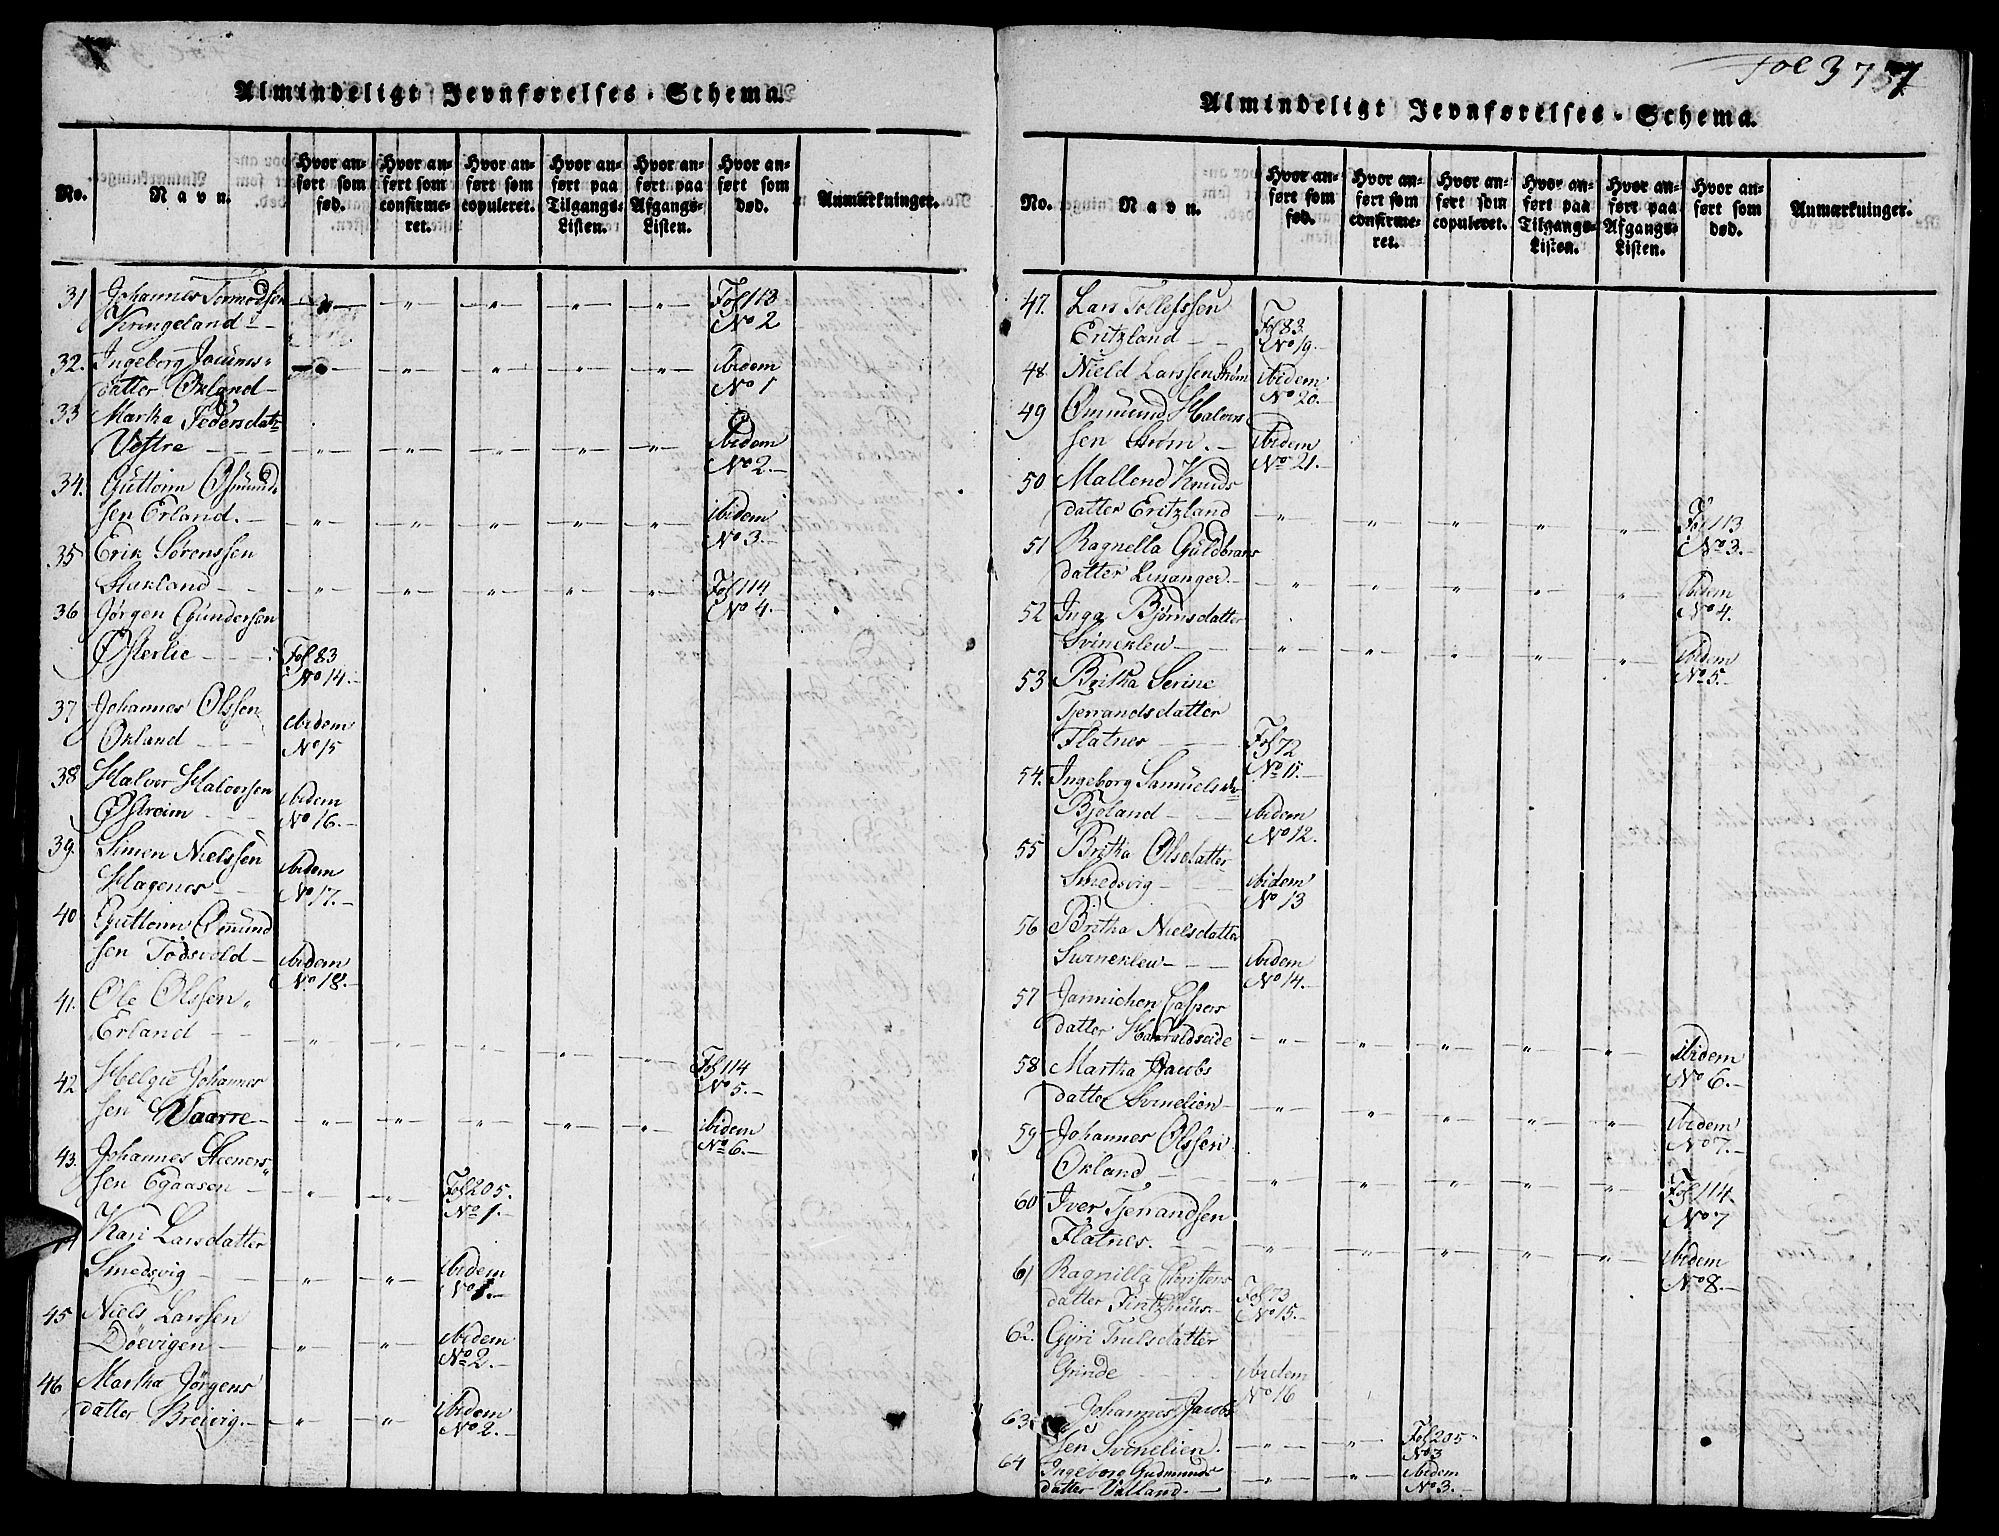 Almindeligt Jevnførelses-Schema.
No.
Navn.
Hvor an-
ført som
fød.
Hvor an-
ført som
confirme-
ret.
Hvor an-
ført som
copuleret.
Hvor an-
ført paa
Tilgangs-
Listen.
Hvor an-
ført paa
Afgangs-
Listen.
Hvor an-
ført som
død.
Anmærkninger.
31 Johannes Tormodsen Fol 113
Kringeland - " - " - " - " - " No 2
32. Ingeborg Joeums- ibidem
datter Økland - " - " - " - " No 1
33 Martha Pedersdatr
Vestre - " - " - " - " - " ibidem No 2.
34. Guttorm Osmund-
sen Erland. - " - " - " - " - " ibidem No 3.
35 Erik Sørenssen
Stakland - " - " - " - " - " Fol 114 No 4.
36 Jørgen Gundersen
Østerlie Fol 83 No 14.
37 Johannes Olssen
Økland ibidem No 15
38 Halver Halversen
Østreim ibidem No 16.
39. Simen Nielssen
Hagenes ibidem No 17.
40 Guttorm Omund
sen Todsvold - ibidem No 18.
41. Ole Olssen
Erland - " - " - " - " - " Fol 114 No 5.
42 Helgie Johannes
sen Vaarre - " - " - " - " - " ibidem No 6.
43. Johannes Steeners-
sen Egaasen - " - " Fol 205. No 1.
Kari Larsdatter
Smedsvig - " - " ibidem No 1.
45 Niels Larssen
Døevigen - " - " ibidem No 2.
46 Martha Jørgens
datter Breivig. - " - " ibidem No 2.
Fol 37
Almindeligt Jevnførelses-Schema.
No.
Navn.
Hvor an-
ført som
fød.
Hvor an-
ført som
confirme-
ret.
Hvor an-
ført som
copuleret.
Hvor an-
ført paa
Tilgangs-
Listen.
Hvor an-
ført paa
Afgangs-
Listen.
Hvor an-
ført som
død.
Anmærkninger.
47. Lars Tollefssen
Eritzland Fol 83 No 19.
48 Nield Larssen Strøm ibidem No 20.
49 Ommund Halvers
sen Strøm. ibidem No 21.
50 Mallene Knuds
datter Eritzland - " - " - " - " - " Fol 113 No 3.
51 Ragnella Guldbrans
datter Linanger - " - " - " - " - " ibidem No 4.
52 Inga Bjørnsdatter
Svineklew - " - " - " - " - " ibidem No 5.
53 Britha Serine
Tjerrandsdatter
Flatnes Fol 72 No 11.
54. Ingeborg Samuelsdr
Bjoland ibidem No 12.
55 Britha Olsdatter
Smedsvig - ibidem No 13
56 Britha Nielsdatter
Svineklew ibidem No 14.
57 Jannichen Caspers
datter Haraldseide - " - " - " - " - " ibidem No 6.
58 Martha Jacobs
datter Svinelien - " - " - " - " - " ibidem No 7.
59 Johannes Olssen
Økland - " - " - " - " - " Fol 114 No 7
60 Iver Tjerrandsen
Flatnes. - " - " - " - " - " ibidem No 8.
61 Ragnilla Christens
datter Fol 73 No 15.
62. Gyri Trulsdatter
Grinde ibidem No 16
63. Johannes Jacobs
sen Svinelien. - " - " Fol 205 No 3
64 Ingeborg Gudmunds
datter Valland. - " - " ibidem No 3.